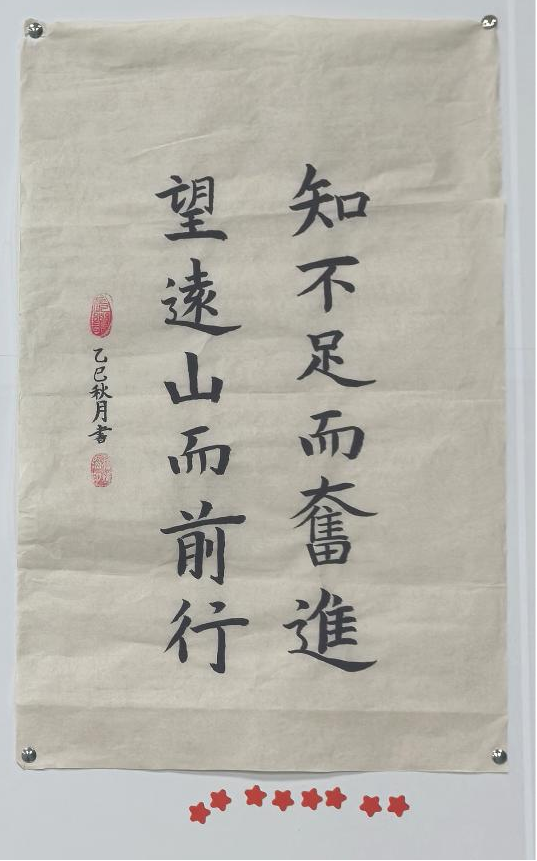 知不足而奮進
望遠山而前行
乙巳秋月書